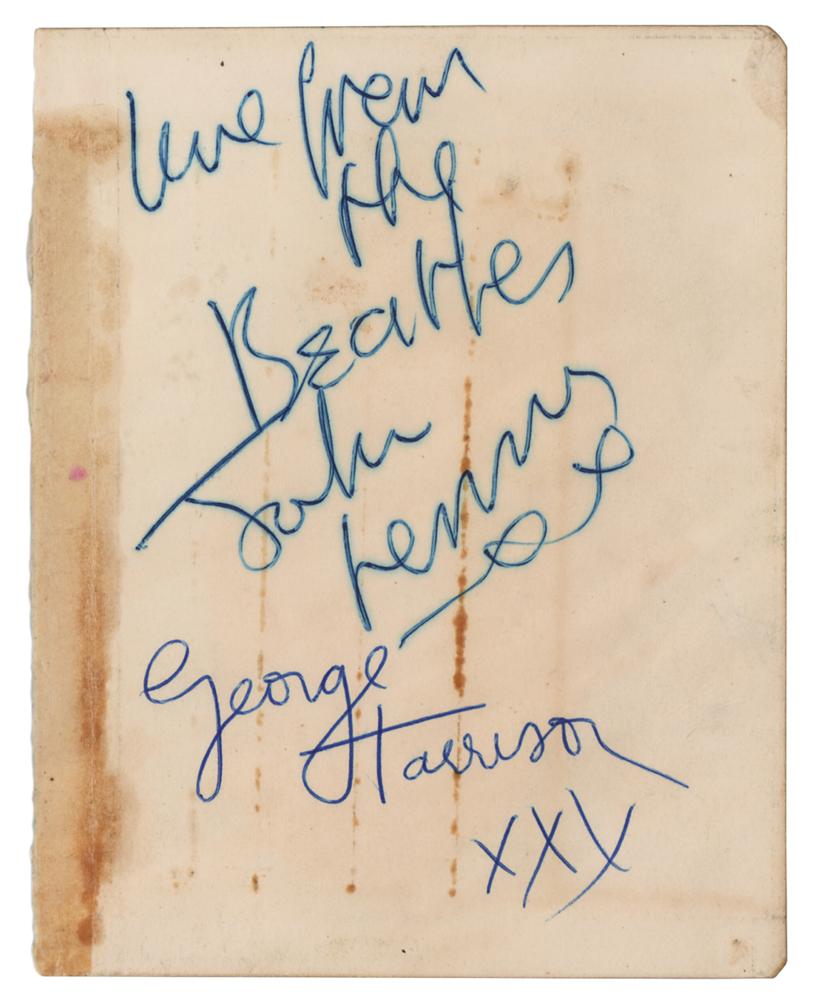 love from
the
Beatles
John
Lennon
George
Harrison
XXX